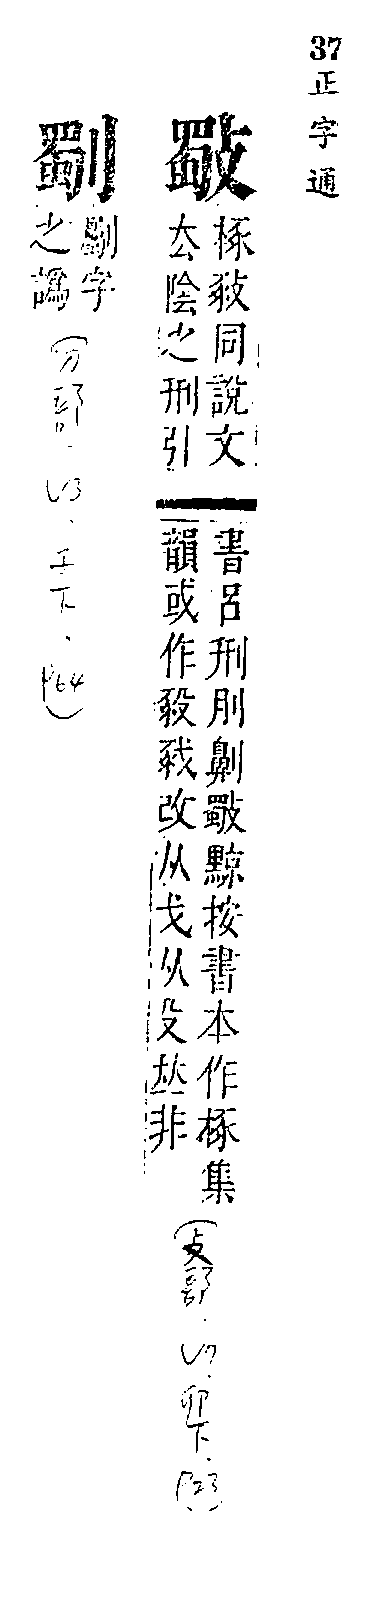 37
正字通
斀
㧻𣪠同說文
去陰之刑引
書呂刑刖劓斀黥按書本作椓集
韻或作𣪠戜改从戈从殳𠀤非
(攴部.

卯下.
P23)
劅
劓字
之譌
(刀部.
子下.
P64)